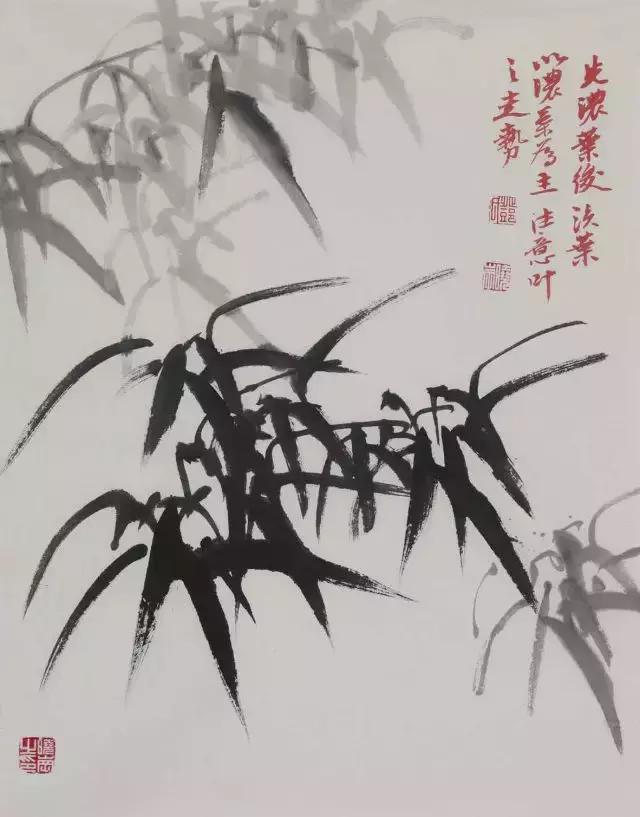 先濃葉後淡葉
以濃葉为主注意叶
之走勢